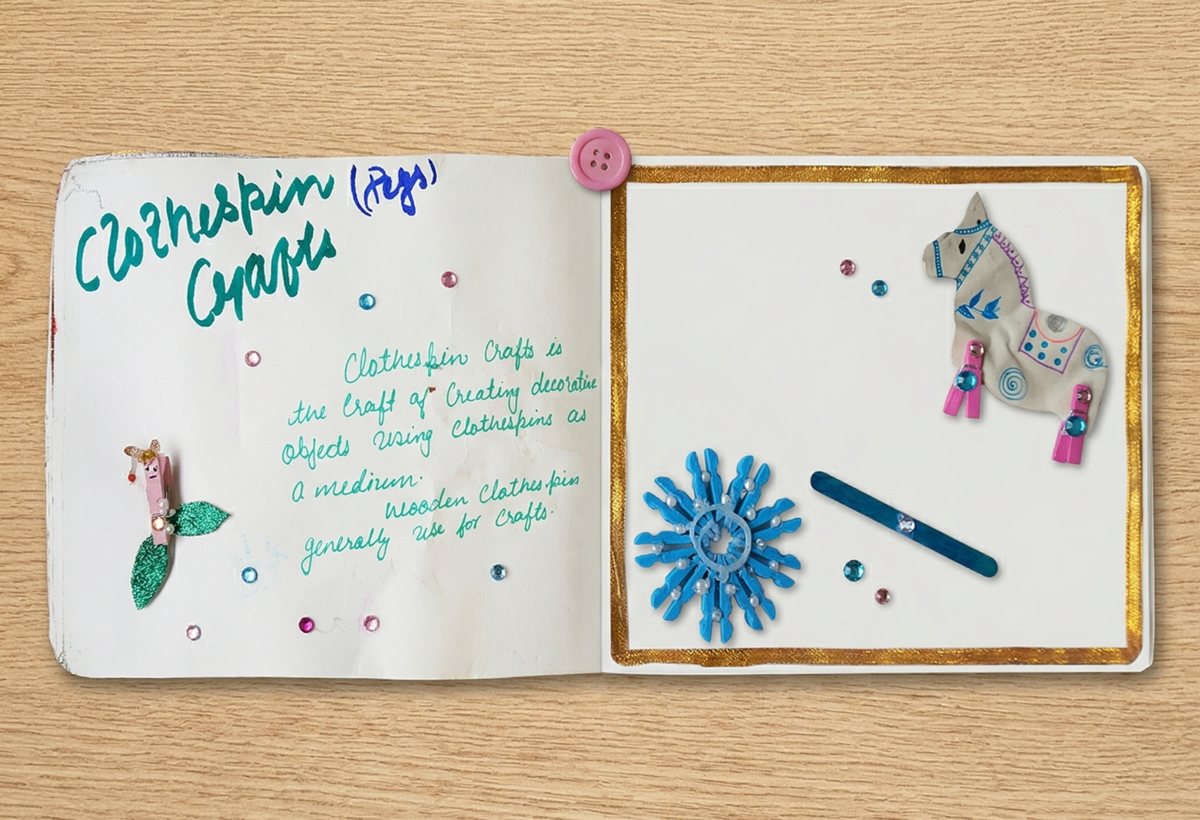 Clothespin (Pegs)
Crafts
Clothespin Crafts is
the Craft of Creating decorative
objects using Clothespins as
a medium.
Wooden Clothespin
generally use for Crafts.